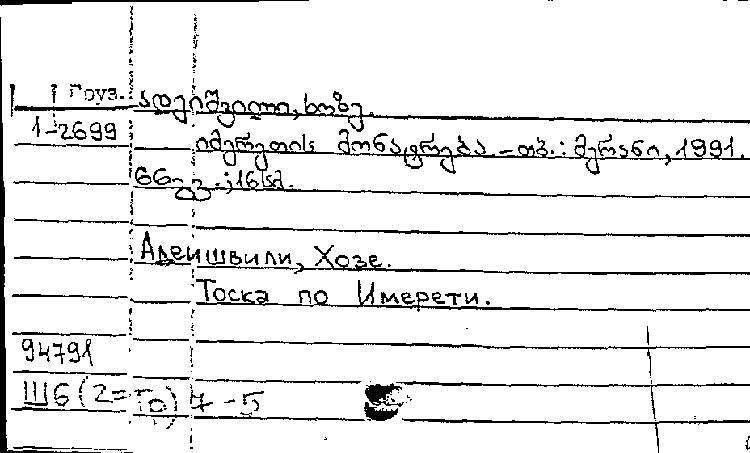 Груз. ადეიშვილი, ხოზე.
1-2699
იმერეთის მონატრება. - თბ.: მერანი, 1991.
66გვ.; 16სმ.
Адеишвили, Хозе.
Тоска по Имерети.
94791
Ш6(2=Го)7-5